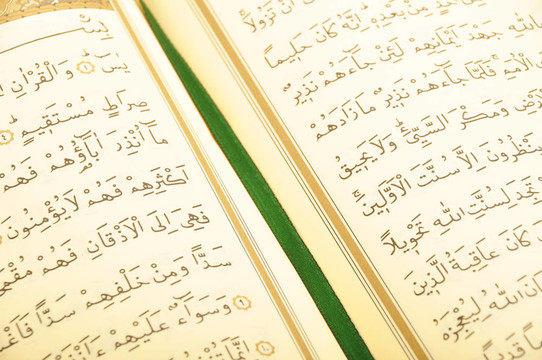 اَنْ تَزُولَاۚ
مِنْ بَعْدِهٖۜ اِنَّهُ كَانَ حَلٖيمًا
بِاللّٰهِ جَهْدَ اَيْمَانِهِمْ لَئِنْ جَٓاءَهُمْ نَذٖيرٌ
الْاُمَمِۚ فَلَمَّا جَٓاءَهُمْ نَذٖيرٌ مَا زَادَهُمْ
وَمَكْرَ السَّيِّئِۜ وَلَا يَحٖيقُ
يَنْظُرُونَ اِلَّا سُنَّتَ الْاَوَّلٖينَۚ
تَجِدَ لِسُنَّتِ اللّٰهِ تَحْوٖيلًا
كَانَ عَاقِبَةُ الَّذٖينَ
كَانَ اللّٰهُ لِيُعْجِزَهُ
يٰسٓ ۝١ وَالْقُرْاٰنِ
صِرَاطٍ مُسْتَقٖيمٍۜ
مَٓا اُنْذِرَ اٰبَٓاؤُ۬هُمْ فَهُمْ
اَكْثَرِهِمْ فَهُمْ لَا يُؤْمِنُونَ
فَهِيَ اِلَى الْاَذْقَانِ فَهُمْ
سَدًّا وَمِنْ خَلْفِهِمْ سَدًّا
وَسَوَٓاءٌ عَلَيْهِمْ
اِنَّمَا